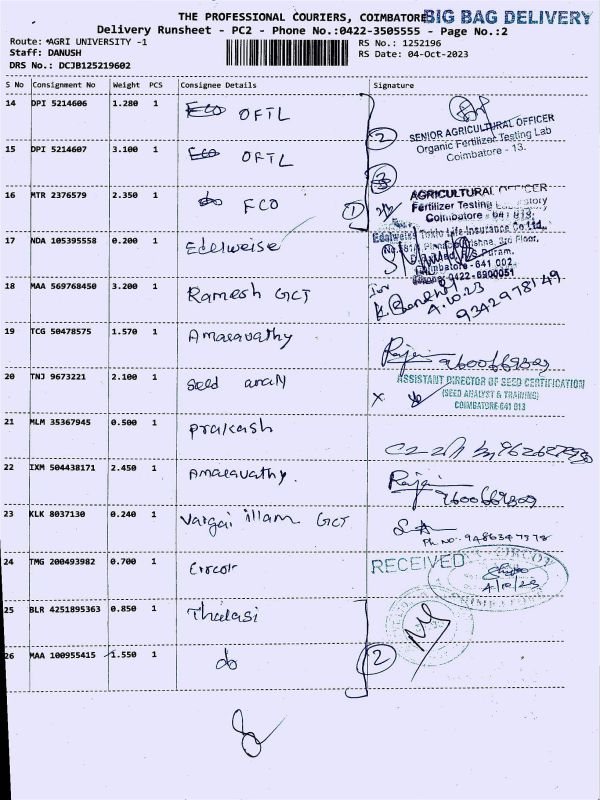 THE PROFESSIONAL COURIERS, COIMBATORE BIG BAG DELIVERY
Delivery Runsheet - PC2 - Phone No.:0422-3505555 - Page No.:2
Route: *AGRI UNIVERSITY -1 RS No.: 1252196
Staff: DANUSH RS Date: 04-Oct-2023
DRS No.: DCJB125219602
S No Consignment No Weight PCS Consignee Details Signature
14 DPI 5214606 1.280 1 OFTL
SENIOR AGRICULTURAL OFFICER
Organic Fertilizer Testing Lab
Coimbatore - 13.
15 DPI 5214607 3.100 1 OFTL
2
16 MTR 2376579 2.350 1 do FCO 1
AGRICULTURAL OFFICER
Fertilizer Testing Laboratory
Coimbatore - 641 013.
17 NDA 105395558 0.200 1 Edelweise
Edelweiss Tokio Life Insurance Co Ltd.,
Krishna, 3rd Floor,
Puram,
Coimbatore - 641 002.
Phone: 0422-6900051
18 MAA 569768450 3.200 1 Ramesh GCT
4.10.23
9342978149
19 TCG 50478575 1.570 1 Amaravathy
9600669309
20 TNJ 9673221 2.100 1 Seed analy
ASSISTANT DIRECTOR OF SEED CERTIFICATION
(SEED ANALYST & TRAINING)
COIMBATORE-641 013
21 MLM 35367945 0.500 1 prakash
22 IXM 504438171 2.450 1 Amaravathy.
9600669309
23 KLK 8037130 0.240 1 Vaigai illam GCT
Ph no.
24 TMG 200493982 0.700 1
RECEIVED
4/10/23
25 BLR 4251895363 0.850 1 Thulasi
26 MAA 100955415 1.550 1 do 2